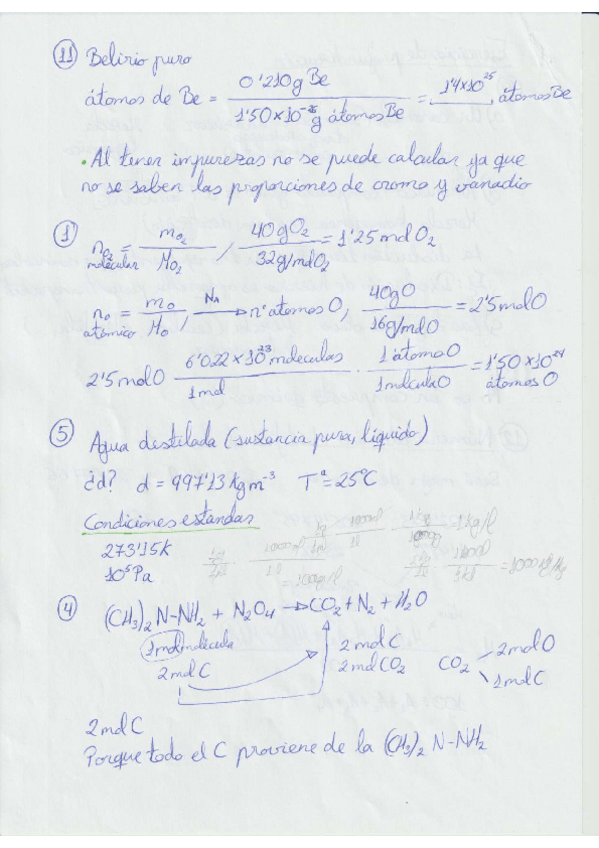 11 Belirio puro
átomos de Be = 0'210g Be / 1'50×10⁻²⁶ g átomos Be = 1'4×10²⁵ átomos Be
• Al tener impurezas no se puede calcular ya que
no se saben las proporciones de cromo y vanadio
1 n O₂ molecular = m O₂ / M O₂ / 40 g O₂ / 32 g/mol O₂ = 1'25 mol O₂
n o atómico = m o / M o , NA → nº átomos O, 40 g O / 16 g/mol O = 2'5 mol O
2'5 mol O 6'022×10²³ moleculas / 1 mol · 1 átomo O / 1 molcula O = 1'50×10²⁴ átomos O
5 Agua destilada (sustancia pura, líquido)
¿d? d = 997'13 Kg m⁻³ Tª = 25°C
Condiciones estandar
273'15 k
10⁵ Pa
4 (CH₃)₂ N-NH₂ + N₂O₄ → CO₂ + N₂ + H₂O
1 mol molécula
2 mol C
2 mol C
2 mol CO₂ CO₂ 2 mol O
1 mol C
2 mol C
Porque todo el C proviene de la (CH₃)₂ N-NH₂